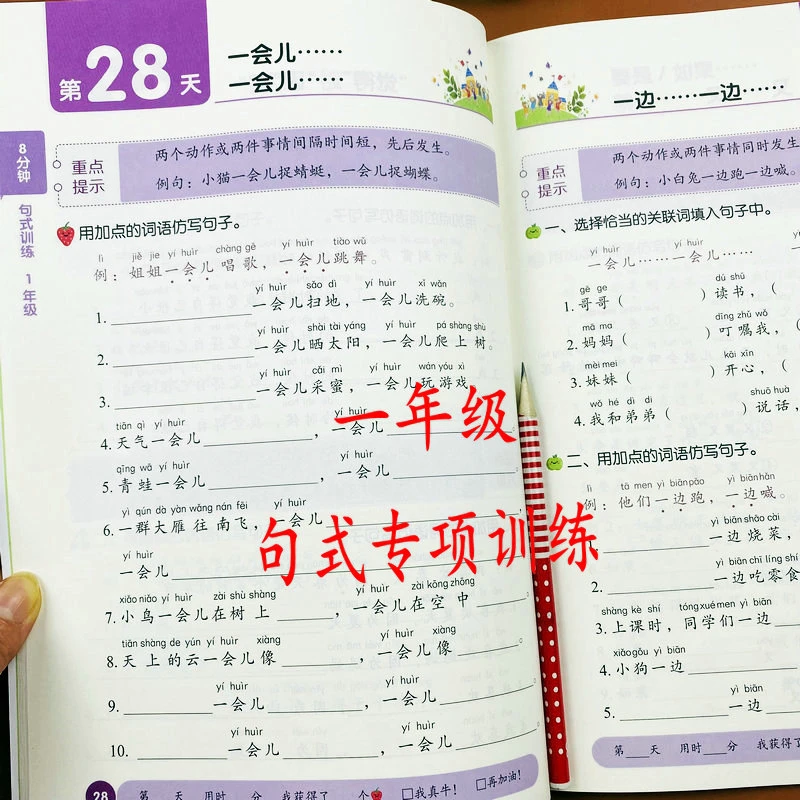 第28天
一会儿……
一会儿……
8分钟 句式训练 1年级
重点
提示
两个动作或两件事情间隔时间短，先后发生。
例句：小猫一会儿捉蜻蜓，一会儿捉蝴蝶。
用加点的词语仿写句子。
lì jiě jie yí huìr chàng gē yí huìr tiào wǔ
例：姐姐一会儿唱歌，一会儿跳舞。
yí huìr sǎo dì yí huìr xǐ wǎn
1.____一会儿扫地，一会儿洗碗。
yí huìr shài tài yáng yí huìr pá shàng shù
2.____一会儿晒太阳，一会儿爬上树。
yí huìr cǎi mì yí huìr wán yóu xì
3.____一会儿采蜜，一会儿玩游戏
tiān qì yí huìr yí huìr
4.天气一会儿____，一会儿____
qīng wā yí huìr yí huìr
5.青蛙一会儿____，一会儿____。
yì qún dà yàn wǎng nán fēi yí huìr
6.一群大雁往南飞，一会儿____
yí huìr
一会儿____。
xiǎo niǎo yí huìr zài shù shàng yí huìr zài kōng zhōng
7.小鸟一会儿在树上____，一会儿在空中____。
tiān shàng de yún yí huìr xiàng yí huìr xiàng
8.天上的云一会儿像____，一会儿像____。
yí huìr yí huìr
9.____一会儿____，一会儿____。
yí huìr yí huìr
10.____一会儿____，一会儿____。
28
第__天 用时__分 我获得了__个 □我真牛！ □再加油！
一边……一边……
重点
提示
两个动作或两件事情同时发生
例句：小白兔一边跑一边喊。
一、选择恰当的关联词填入句子中。
yí huìr yí huìr yì biān
一会儿……一会儿…… 一边
gē ge dú shū
1.哥哥（ ）读书，（
mā ma dīng zhǔ wǒ
2.妈妈（ ）叮嘱我，（
mèi mei kāi xīn
3.妹妹（ ）开心，（
wǒ hé dì di shuō huà
4.我和弟弟（ ）说话，
二、用加点的词语仿写句子。
lì tā men yì biān pǎo yì biān hǎn
例：他们一边跑，一边喊。
yì biān shāo cài
1.____一边烧菜，
yì biān chī líng shí
2.____一边吃零食
shàng kè shí tóng xué men yì biān
3.上课时，同学们一边
xiǎo gǒu yì biān
4.小狗一边
yì biān
5.____一边
第__天 用时__分 我获得了
一年级
句式专项训练